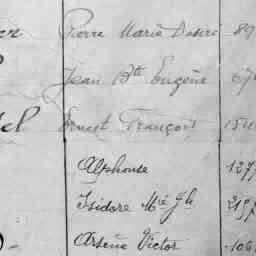 Pierre Marie Désiré 89
Jean Bte Eugène 67
del Ernest François 154
Alphonse 127
Isidore Mie Jh 219
Arsène Victor 106